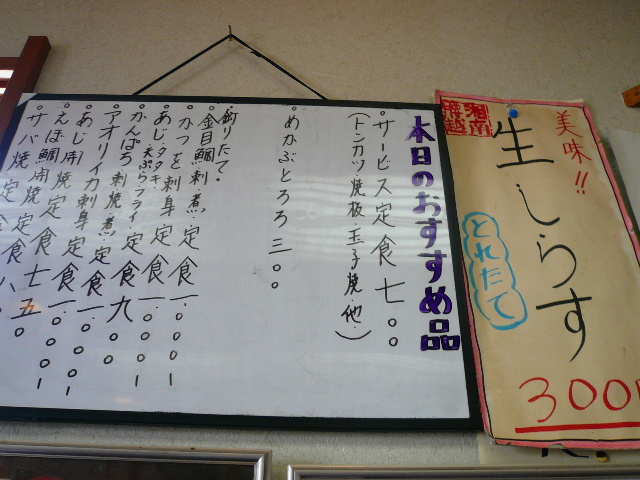 湘南
腰越
美味!!
生しらす
とれたて
300
本日のおすすめ品
サービス定食七〇〇
(トンカツ・焼板・玉子焼・他)
めかぶとろろ三〇〇
釣りたて・
金目鯛刺煮定食一.〇〇〇
かつを刺身定食一.〇〇〇
あじ・タタキ・天ぷらフライ・定食九〇〇
かんぱち刺焼煮定食一.〇〇〇
アオリイカ刺身定食一.〇〇〇
あじ開焼定食七五〇
えぼ鯛開焼定食
サバ焼定食八